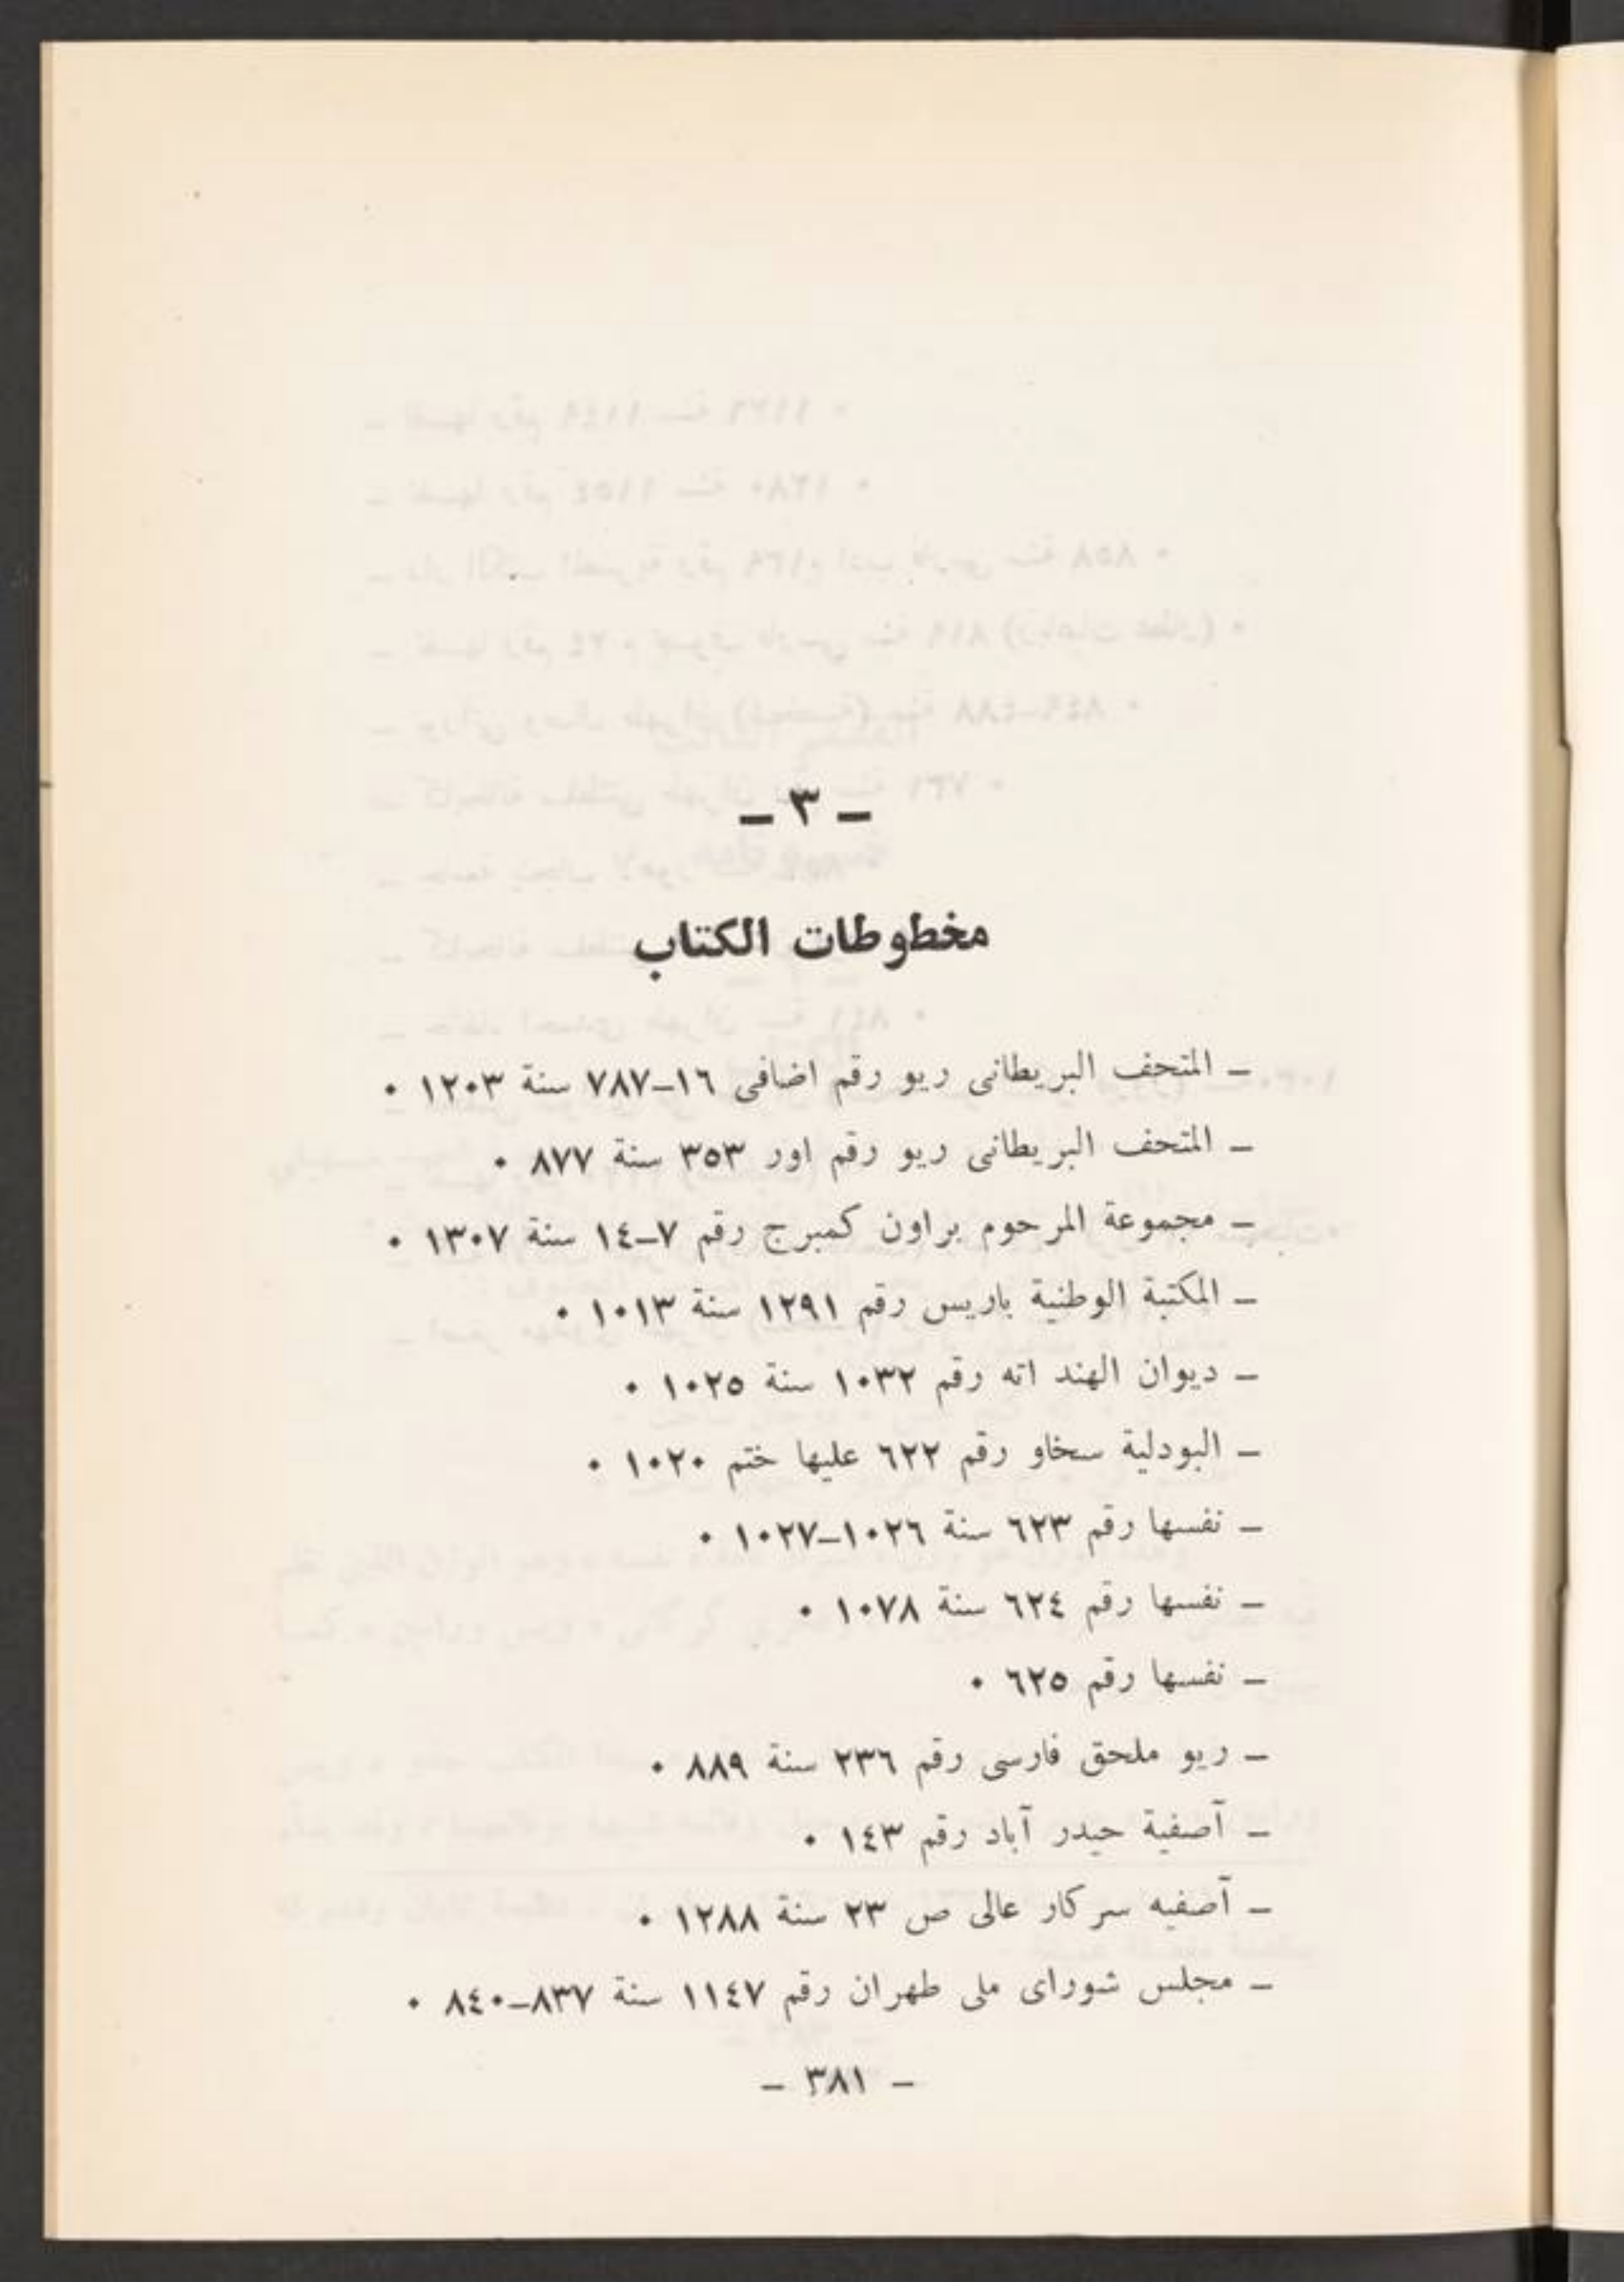 – ٣ –
مخطوطات الكتاب
– المتحف البريطانى ريو رقم اضافى ١٦–٧٨٧ سنة ١٢٠٣ ٠
– المتحف البريطانى ريو رقم اور ٣٥٣ سنة ٨٧٧ ٠
– مجموعة المرحوم براون كمبرج رقم ٧–١٤ سنة ١٣٠٧ ٠
– المكتبة الوطنية باريس رقم ١٢٩١ سنة ١٠١٣ ٠
– ديوان الهند اته رقم ١٠٣٢ سنة ١٠٢٥ ٠
– البودلية سخاو رقم ٦٢٢ عليها ختم ١٠٢٠ ٠
– نفسها رقم ٦٢٣ سنة ١٠٢٦–١٠٢٧ ٠
– نفسها رقم ٦٢٤ سنة ١٠٧٨ ٠
– نفسها رقم ٦٢٥ ٠
– ريو ملحق فارسى رقم ٢٣٦ سنة ٨٨٩ ٠
– آصفية حيدر آباد رقم ١٤٣ ٠
– آصفيه سركار عالى ص ٢٣ سنة ١٢٨٨ ٠
– مجلس شوراى ملى طهران رقم ١١٤٧ سنة ٨٣٧–٨٤٠ ٠
– ٣٨١ –